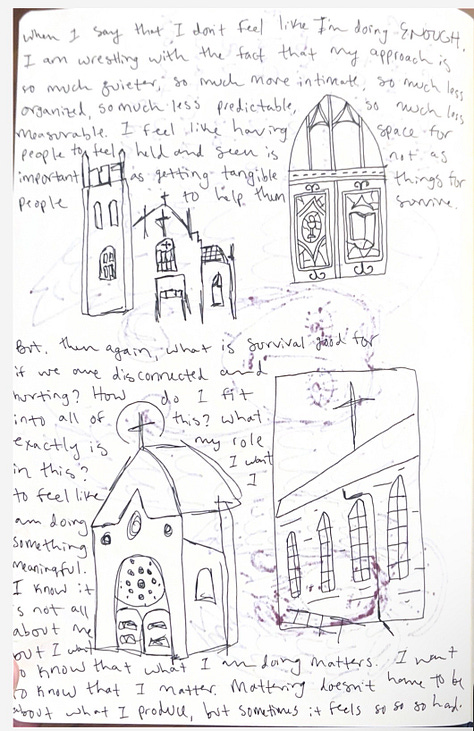 when I say that I don't feel like I'm doing ENOUGH,
I am wrestling with the fact that my approach is
so much quieter, so much more intimate, so much less
organized, so much less predictable, so much less
measurable. I feel like having space for
people to feel held and seen is not as
important as getting tangible things for
people to help them survive.
But, then again, what is survival good for
if we are disconnected and
hurting? How do I fit
into all of this? What
exactly is my role
in this? I want
I
to feel like
am doing
something
meaningful.
I know it
is not all
about me
but I want
to know that what I am doing matters. I want
to know that I matter. Mattering doesn't have to be
about what I produce, but sometimes it feels so so so hard.